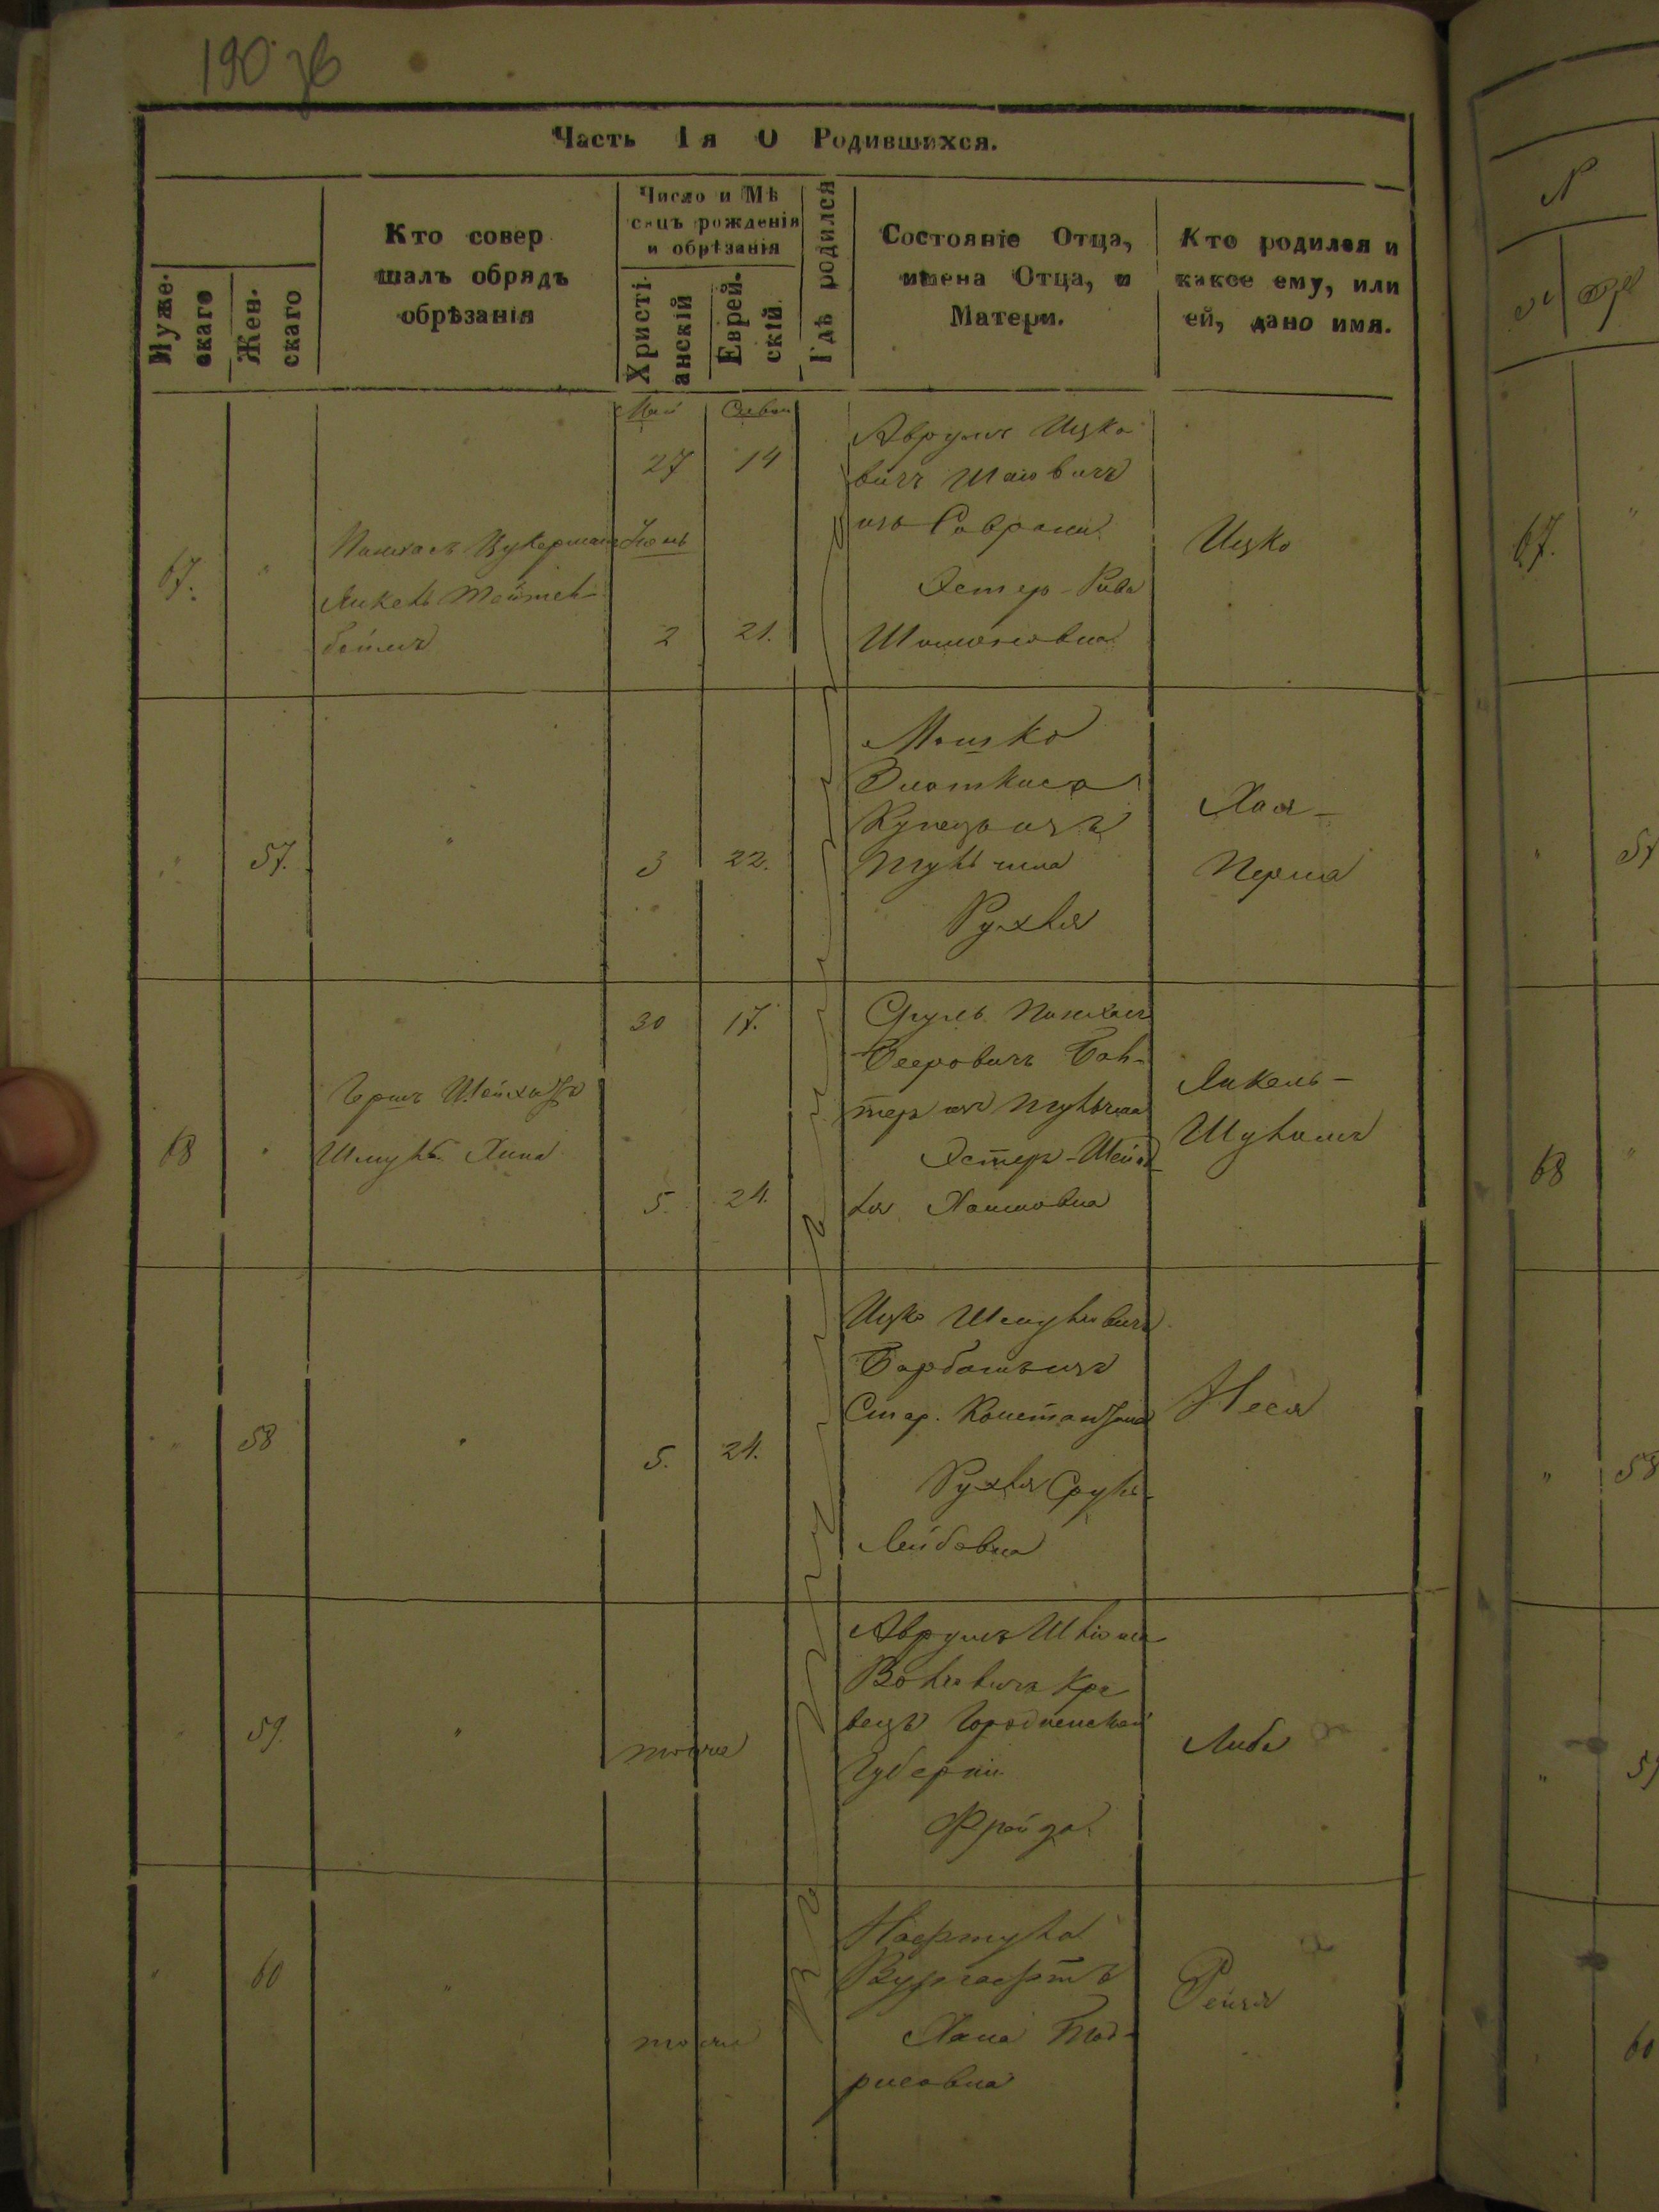 190 зв
Часть 1я О Родившихся.
Муже-
скаго
Жен-
скаго
Кто совер
шалъ обрядъ
обрѣзанія
Число и Мѣ
сяцъ рожденія
и обрѣзанія
Христі-
анскій
Еврей-
скій
Гдѣ родился
Состояніе Отца,
имена Отца, и
Матери.
Кто родился и
какое ему, или
ей, дано имя.
67.
"
Пинхасъ Цукерманъ
Янкель Тейтель
боймъ
Май
27
Июнь
2
Сиван
14
21.
Аврумъ Ицко
вичъ
изъ Саврани
Эстер-Рива
Шоломовна
Ицко
"
57.
"
3
22.
Мошко
Златкисъ
Купецъ изъ
Тульчина
Рухля
Хая-
Перля
68
"
Гершъ
Шмуль
30
5.
17.
24.
Сруль Пинхасъ
Бееровичъ
изъ Тульчина
Эстеръ-Шейн
для Хаимовна
Янкель-
Шулимъ
"
58
"
5.
24.
Ицко Шмулевичъ
Барбашъ изъ
Стар. Константина
Рухля Сруль-
Лейбовна
Неся
"
59.
"
тоже
Аврумъ Шлиома
Волковичъ Кра
вецъ Гродненской
Губерніи
Фрейда
Либа
"
60
"
тоже
Нафтула
Вургафтъ
Хана Мод-
рисовна
Рейзя
N
67.
"
"
57
68
"
"
58
"
59
60